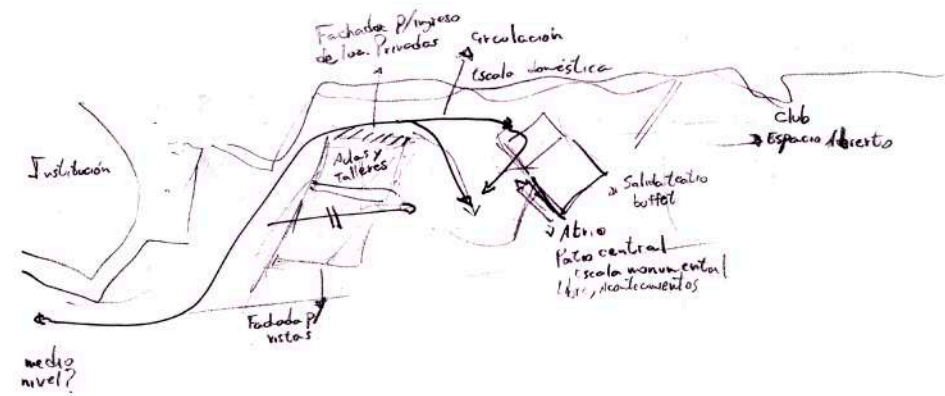 Fachada p/ingreso
de los. Privados
Circulación
Escala doméstica
Club
Espacio Abierto
Institución
Aulas y
Talleres
Salida teatro
buffet
Atrio
Patio central
Escala monumental
acontecimentos
Fachada p/
vistas
medio
nivel?